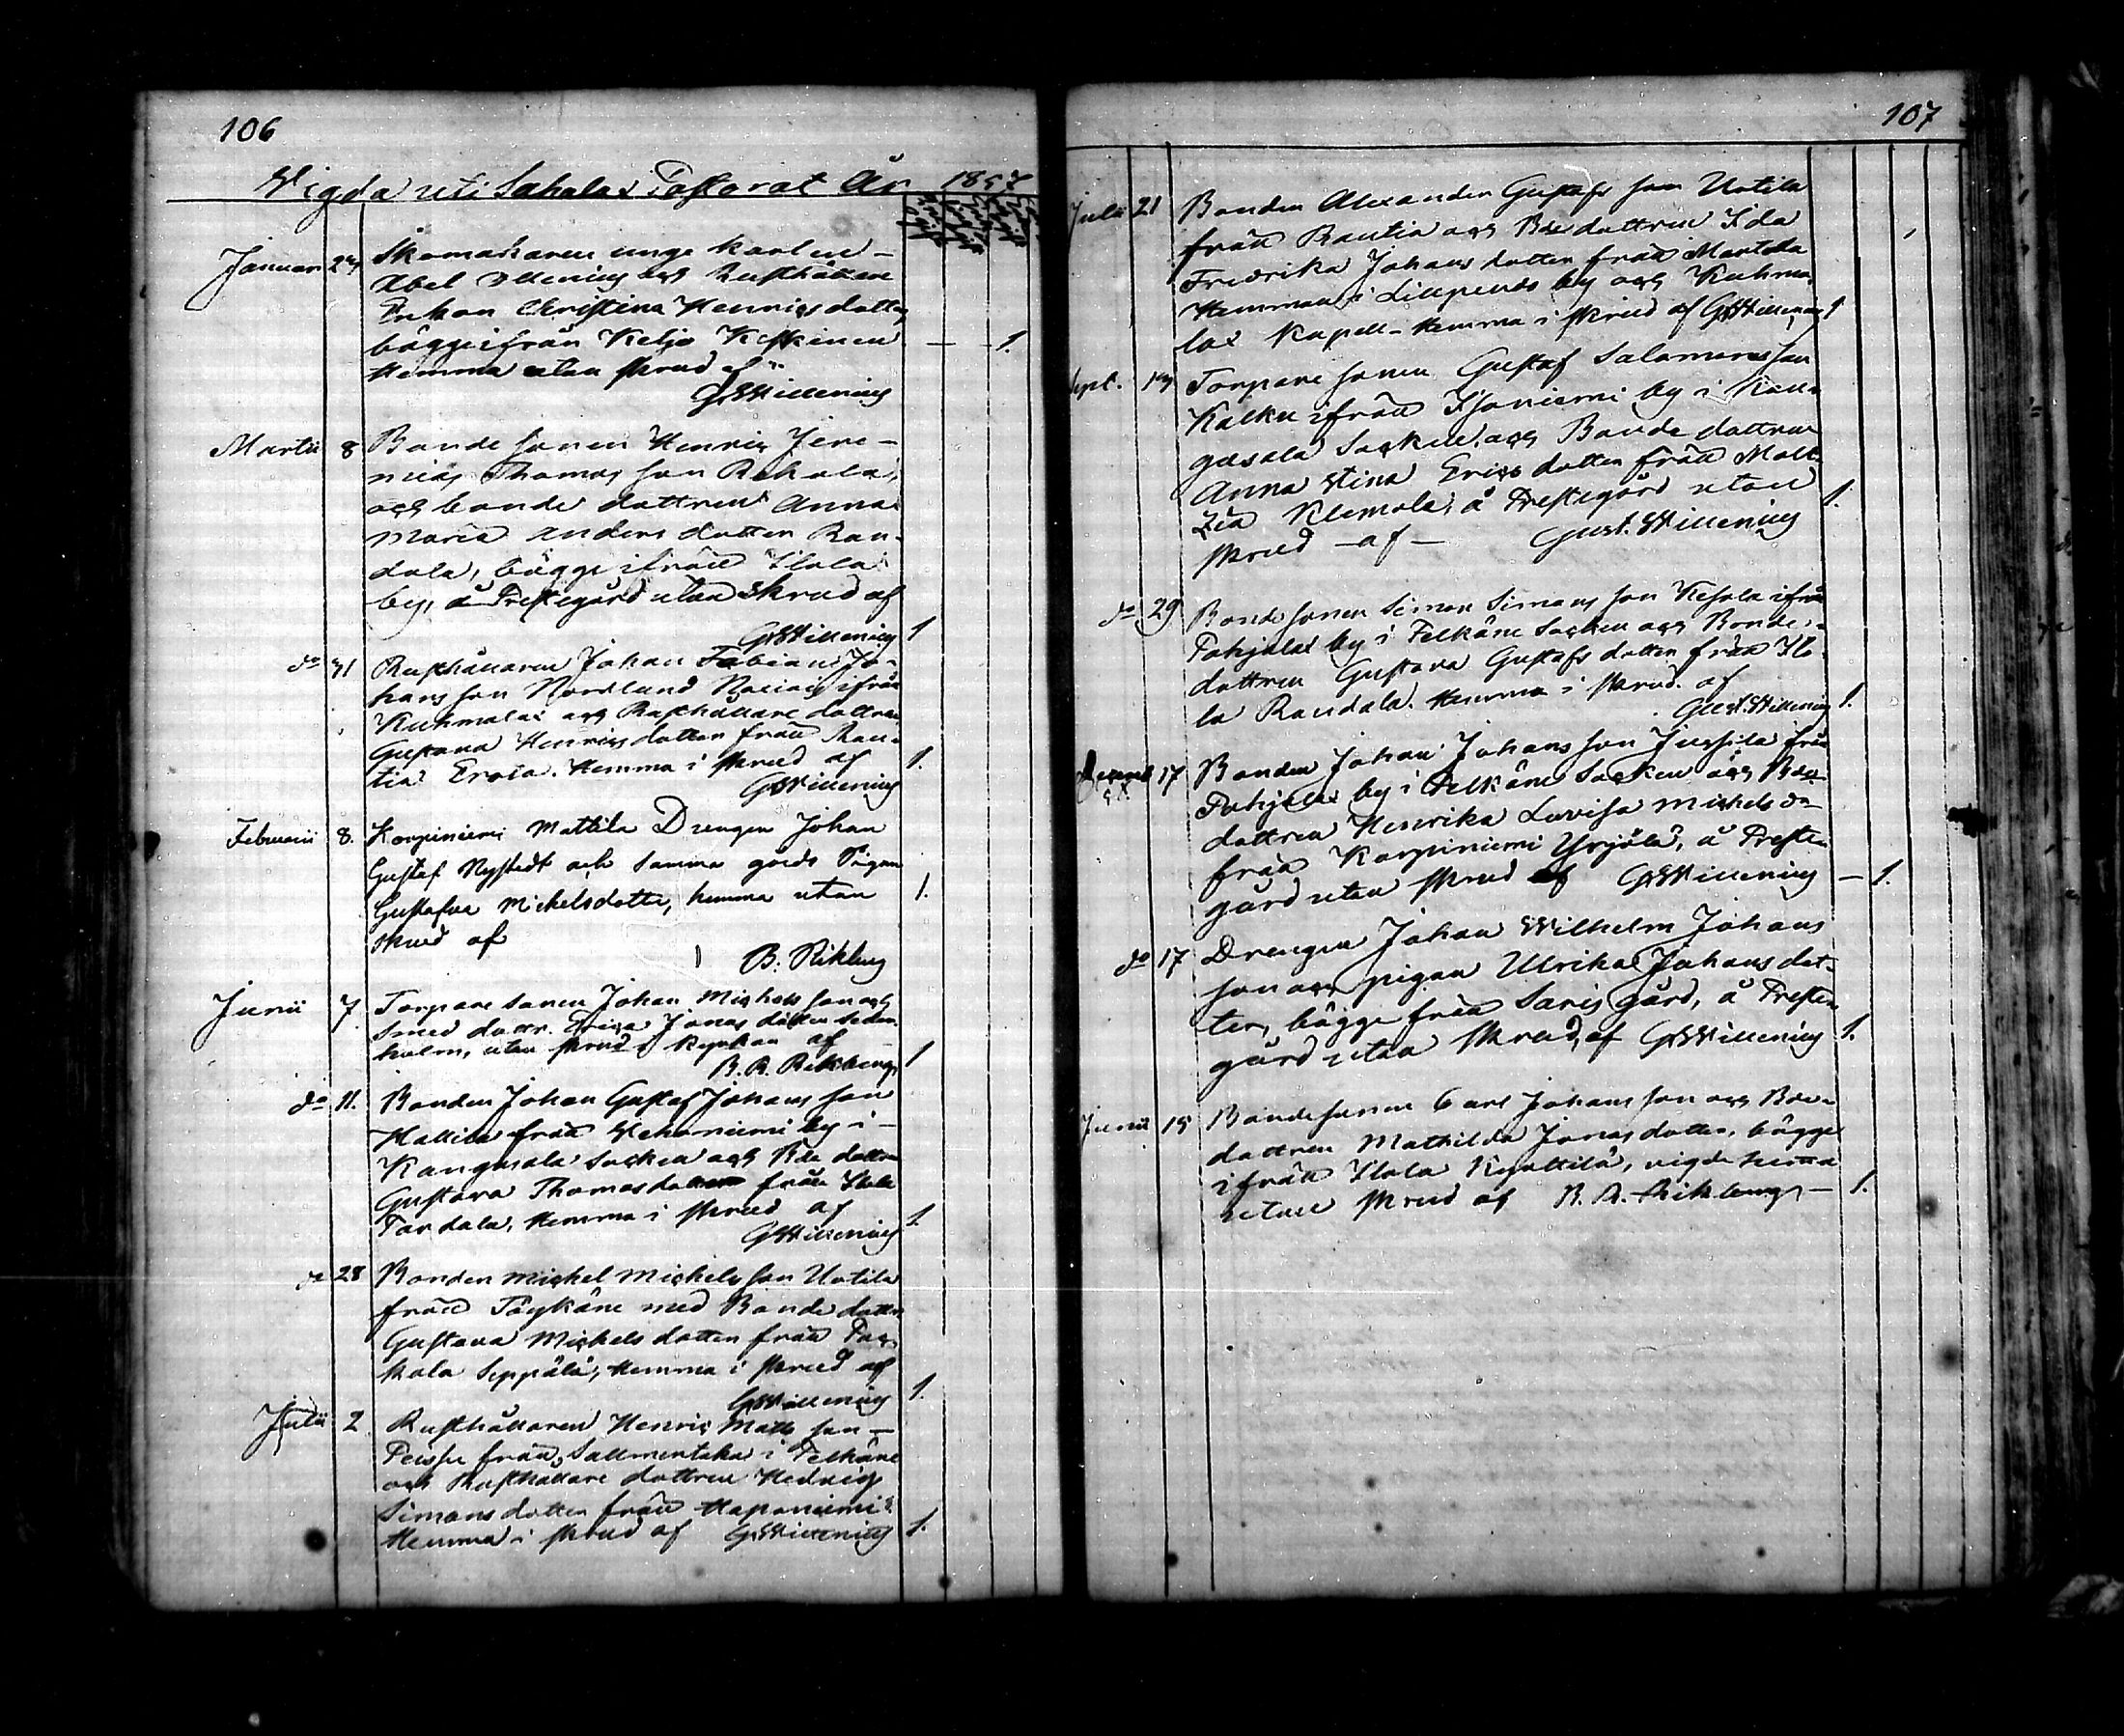 106
Vigda uti Sahalax Pastorat År 1857
Januari 27 Skomakaren unge karlen
Abel Illenius och Rusthållare
Enkan Christina Henrics dotter
bägge ifrån Keljo Keskinen
Hemma utan skrud af 1.
GWillenius
Martii 8 Bonde sonen Henric Jere-
mias Thomas son Rekola,
och bonde dottren Anna
Maria Anders dotter Ran-
dala, bägge ifrån Ilola
by, å Prestegård utan skrud af
GWillenius 1
do 31 Rusthållaren Johan Fabian Jo-
hans son Nordlund ifrån
Kuhmalax och Rusthållare dottren
Gustava Henrics dotter från Rau-
tia Erola. Hemma i skrud af 1.
GWillenius
Februarii 8. Korpiniemi Mattila Drengen Johan
Gustaf Nystedt och samma gårds Pigan
Gustafva Michelsdotter, hemma utan 1.
skrud af
B. Rikberg
Junii 7. Torpare sonen Johan Michels son och
smed dottr. Erica Jonas dotter Seder-
holm, utan skrud i kyrkan af
B. R. Rikberg 1
do 11. Bonden Johan Gustaf Johans son
Hallila från Vehoniemi by i
Kangasala Socken och Bde dottren
Gustava Thomasdotter från Ilola
Tardala, Hemma i skrud af
GWillenius 1.
do 28 Bonden Michel Michels son Uotila
från Töykäne med Bonde dottr.
Gustava Michels dotter från
Seppälä, Hemma i skrud af
GWillenius 1.
Julii 2 Rusthållaren Henric Matts son
Peissu från Sallmentaka i Pelkäne
och Rusthållare dottren Hedvig
Simons dotter från Haponiemi
Hemma i skrud af GWillenius 1.
107
Julii 21 Bonden Alexander Gustafs son Uotila
från Rautia och Bde dottren Ida
Fredrika Johans dotter från Martila
Hemman i Liupendo by och Kuhma-
lax Kapell. Hemma i skrud af GWillenius 1
Sept. 17 Torpare sonen Gustaf Salomons son
Kalku ifrån Isoniemi by i Kan-
gasala Socken, och Bonde dottren
Anna Stina Erics dotter från Molt-
zia Klemola, å Prestegård utan 1.
skrud af Gust. Willenius
do 29 Bonde sonen Simon Simons son Kesola ifrån
Pohjalax by i Pelkäne Socken och Bonde
dottren Gustava Gustafs dotter från Ilo-
la Randala. Hemma i skrud. af
Gust. Willenius 1.
Decemb 17 Bonden Johan Johans son Jussila från
Pohjalax by i Pelkäne Socken och Bde
dottren Henrika Lovisa Michels dr
från Korpiniemi Yrjölä, å Preste-
gård utan skrud af GWillenius 1.
do 17 Drengen Johan Wilhelm Johans
son och pigan Ulrika Johans dot-
ter, bägge från Saris gård, å Preste-
gård utan skrud, af GWillenius 1.
Junii 19 Bondesonen Carl Johans son och Bde
dottren Mathilda Jonas dotter, bägge
ifrån Ilola Kynttilä, vigde hemma
utan skrud af B. R. Rikberg 1.